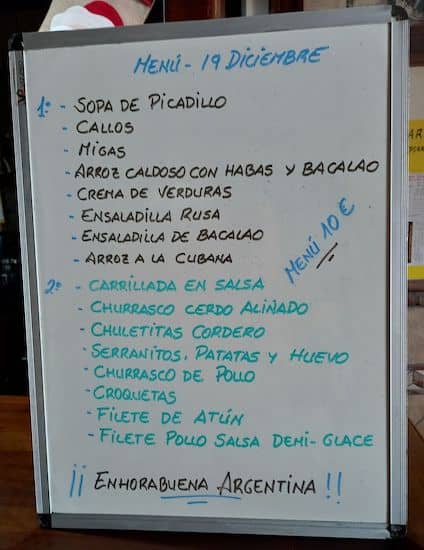 MENÚ - 19 DICIEMBRE
1º - SOPA DE PICADILLO
- CALLOS
- MIGAS
- ARROZ CALDOSO CON HABAS Y BACALAO
- CREMA DE VERDURAS
- ENSALADILLA RUSA
- ENSALADILLA DE BACALAO
- ARROZ A LA CUBANA
MENÚ 10 €
2º - CARRILLADA EN SALSA
- CHURRASCO CERDO ALIÑADO
- CHULETITAS CORDERO
- SERRANITOS, PATATAS Y HUEVO
- CHURRASCO DE POLLO
- CROQUETAS
- FILETE DE ATÚN
- FILETE POLLO SALSA DEMI-GLACE
¡¡ ENHORABUENA ARGENTINA !!